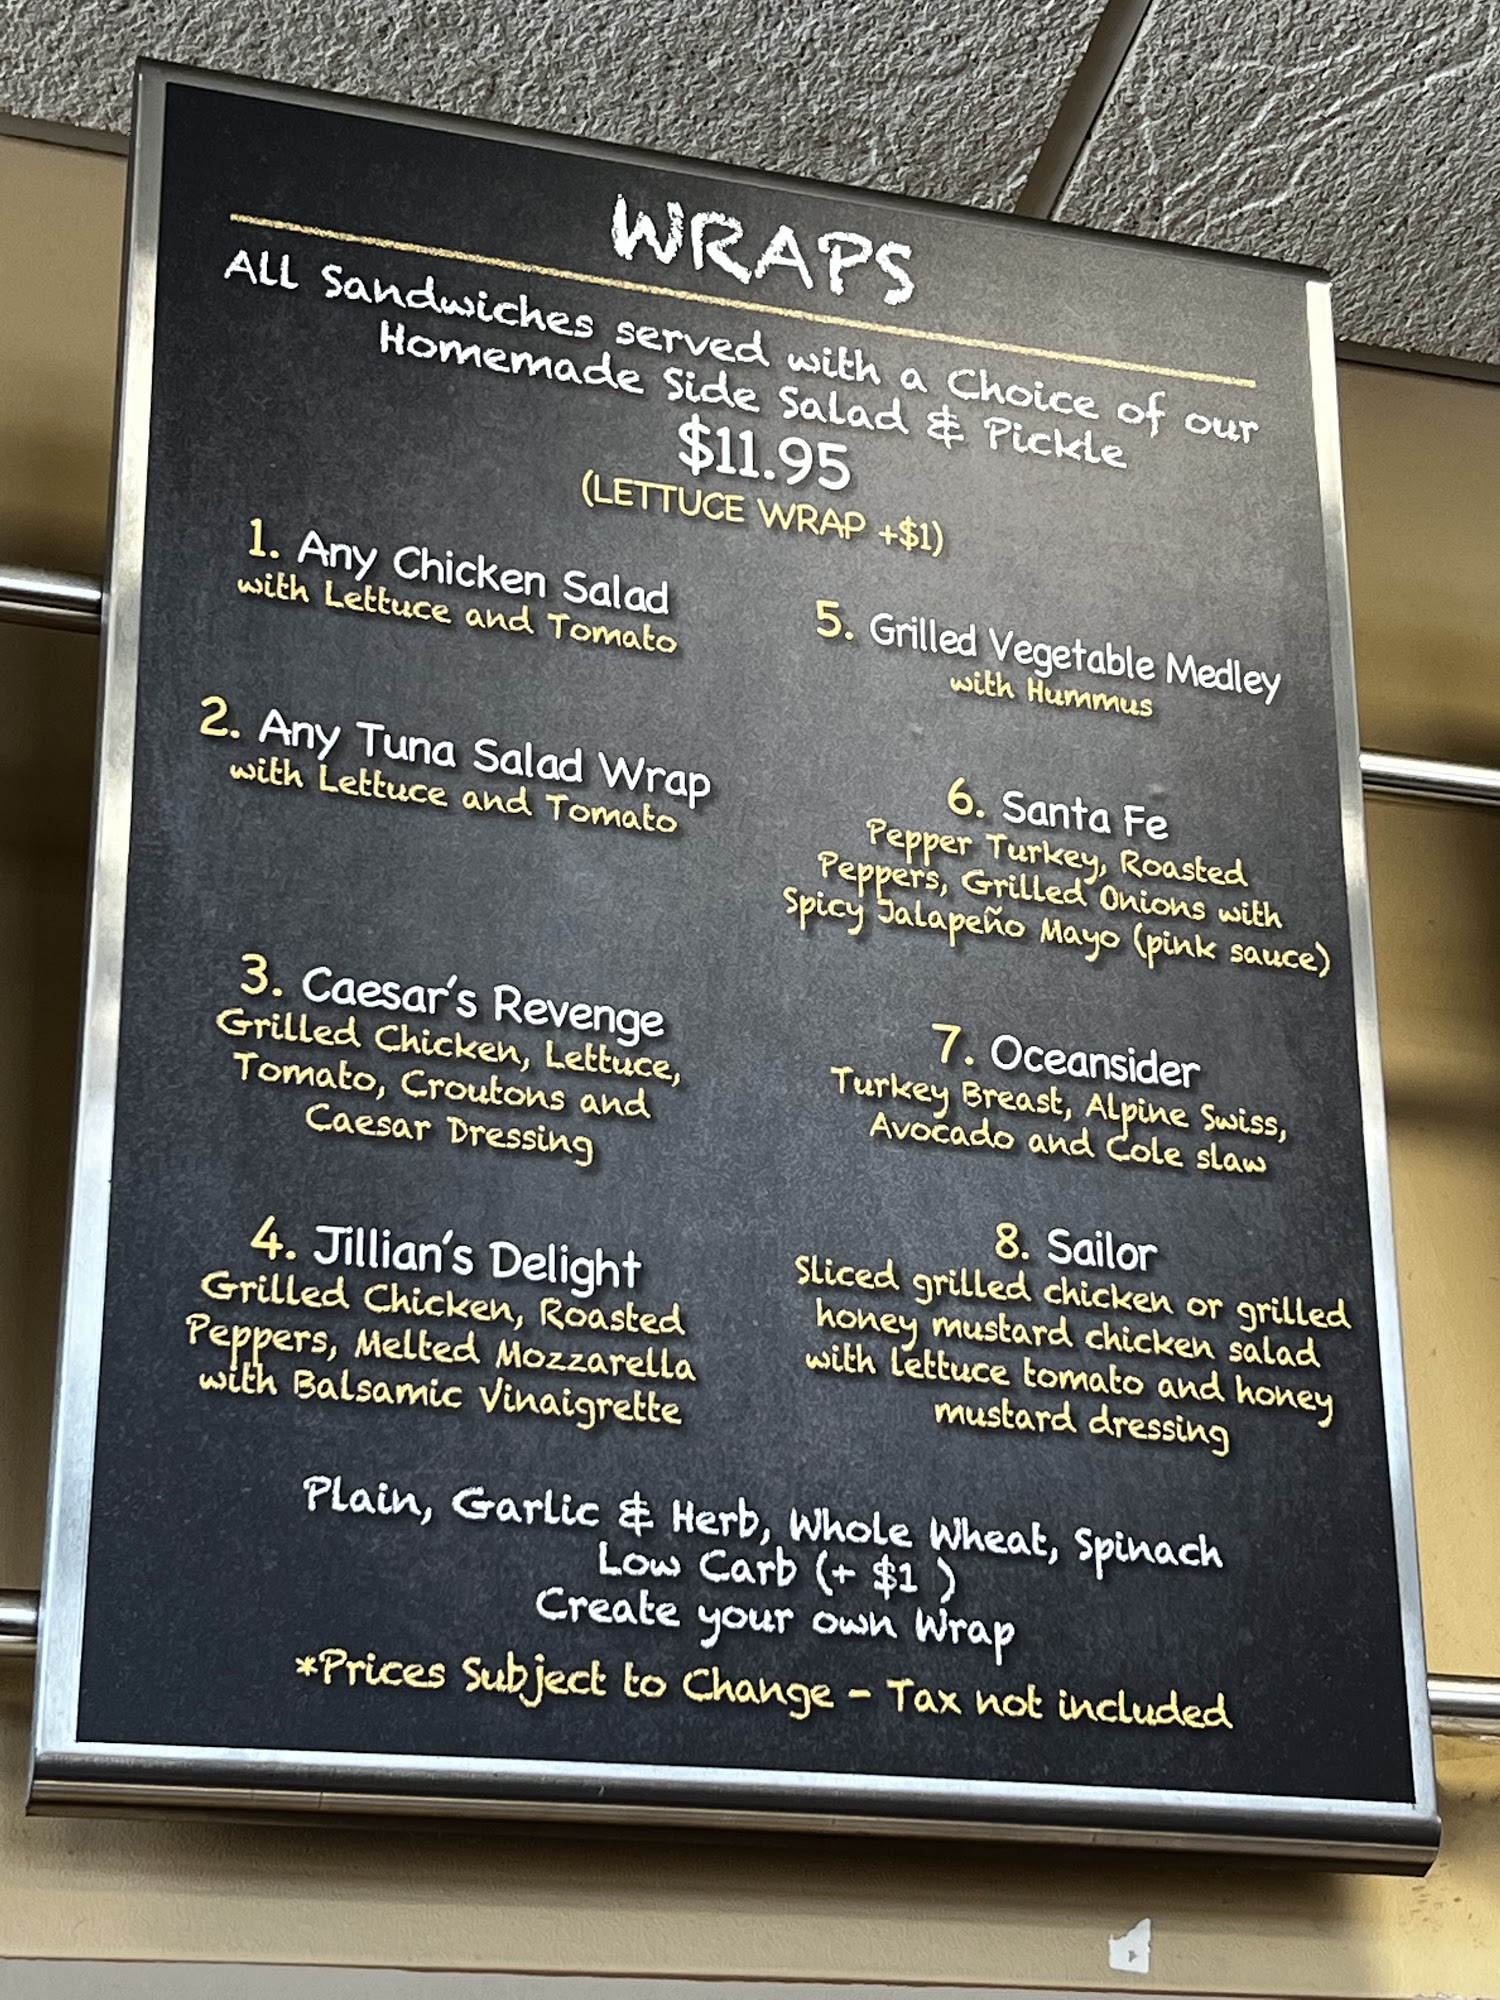 WRAPS
ALL Sandwiches served with a Choice of our
Homemade Side Salad & Pickle
$11.95
(LETTUCE WRAP +$1)
1. Any Chicken Salad
with Lettuce and Tomato
2. Any Tuna Salad Wrap
with Lettuce and Tomato
3. Caesar's Revenge
Grilled Chicken, Lettuce,
Tomato, Croutons and
Caesar Dressing
4. Jillian's Delight
Grilled Chicken, Roasted
Peppers, Melted Mozzarella
with Balsamic Vinaigrette
5. Grilled Vegetable Medley
with Hummus
6. Santa Fe
Pepper Turkey, Roasted
Peppers, Grilled Onions with
Spicy Jalapeño Mayo (pink sauce)
7. Oceansider
Turkey Breast, Alpine Swiss,
Avocado and Cole slaw
8. Sailor
Sliced grilled chicken or grilled
honey mustard chicken salad
with lettuce tomato and honey
mustard dressing
Plain, Garlic & Herb, Whole Wheat, Spinach
Low Carb (+ $1 )
Create your own Wrap
*Prices Subject to Change - Tax not included